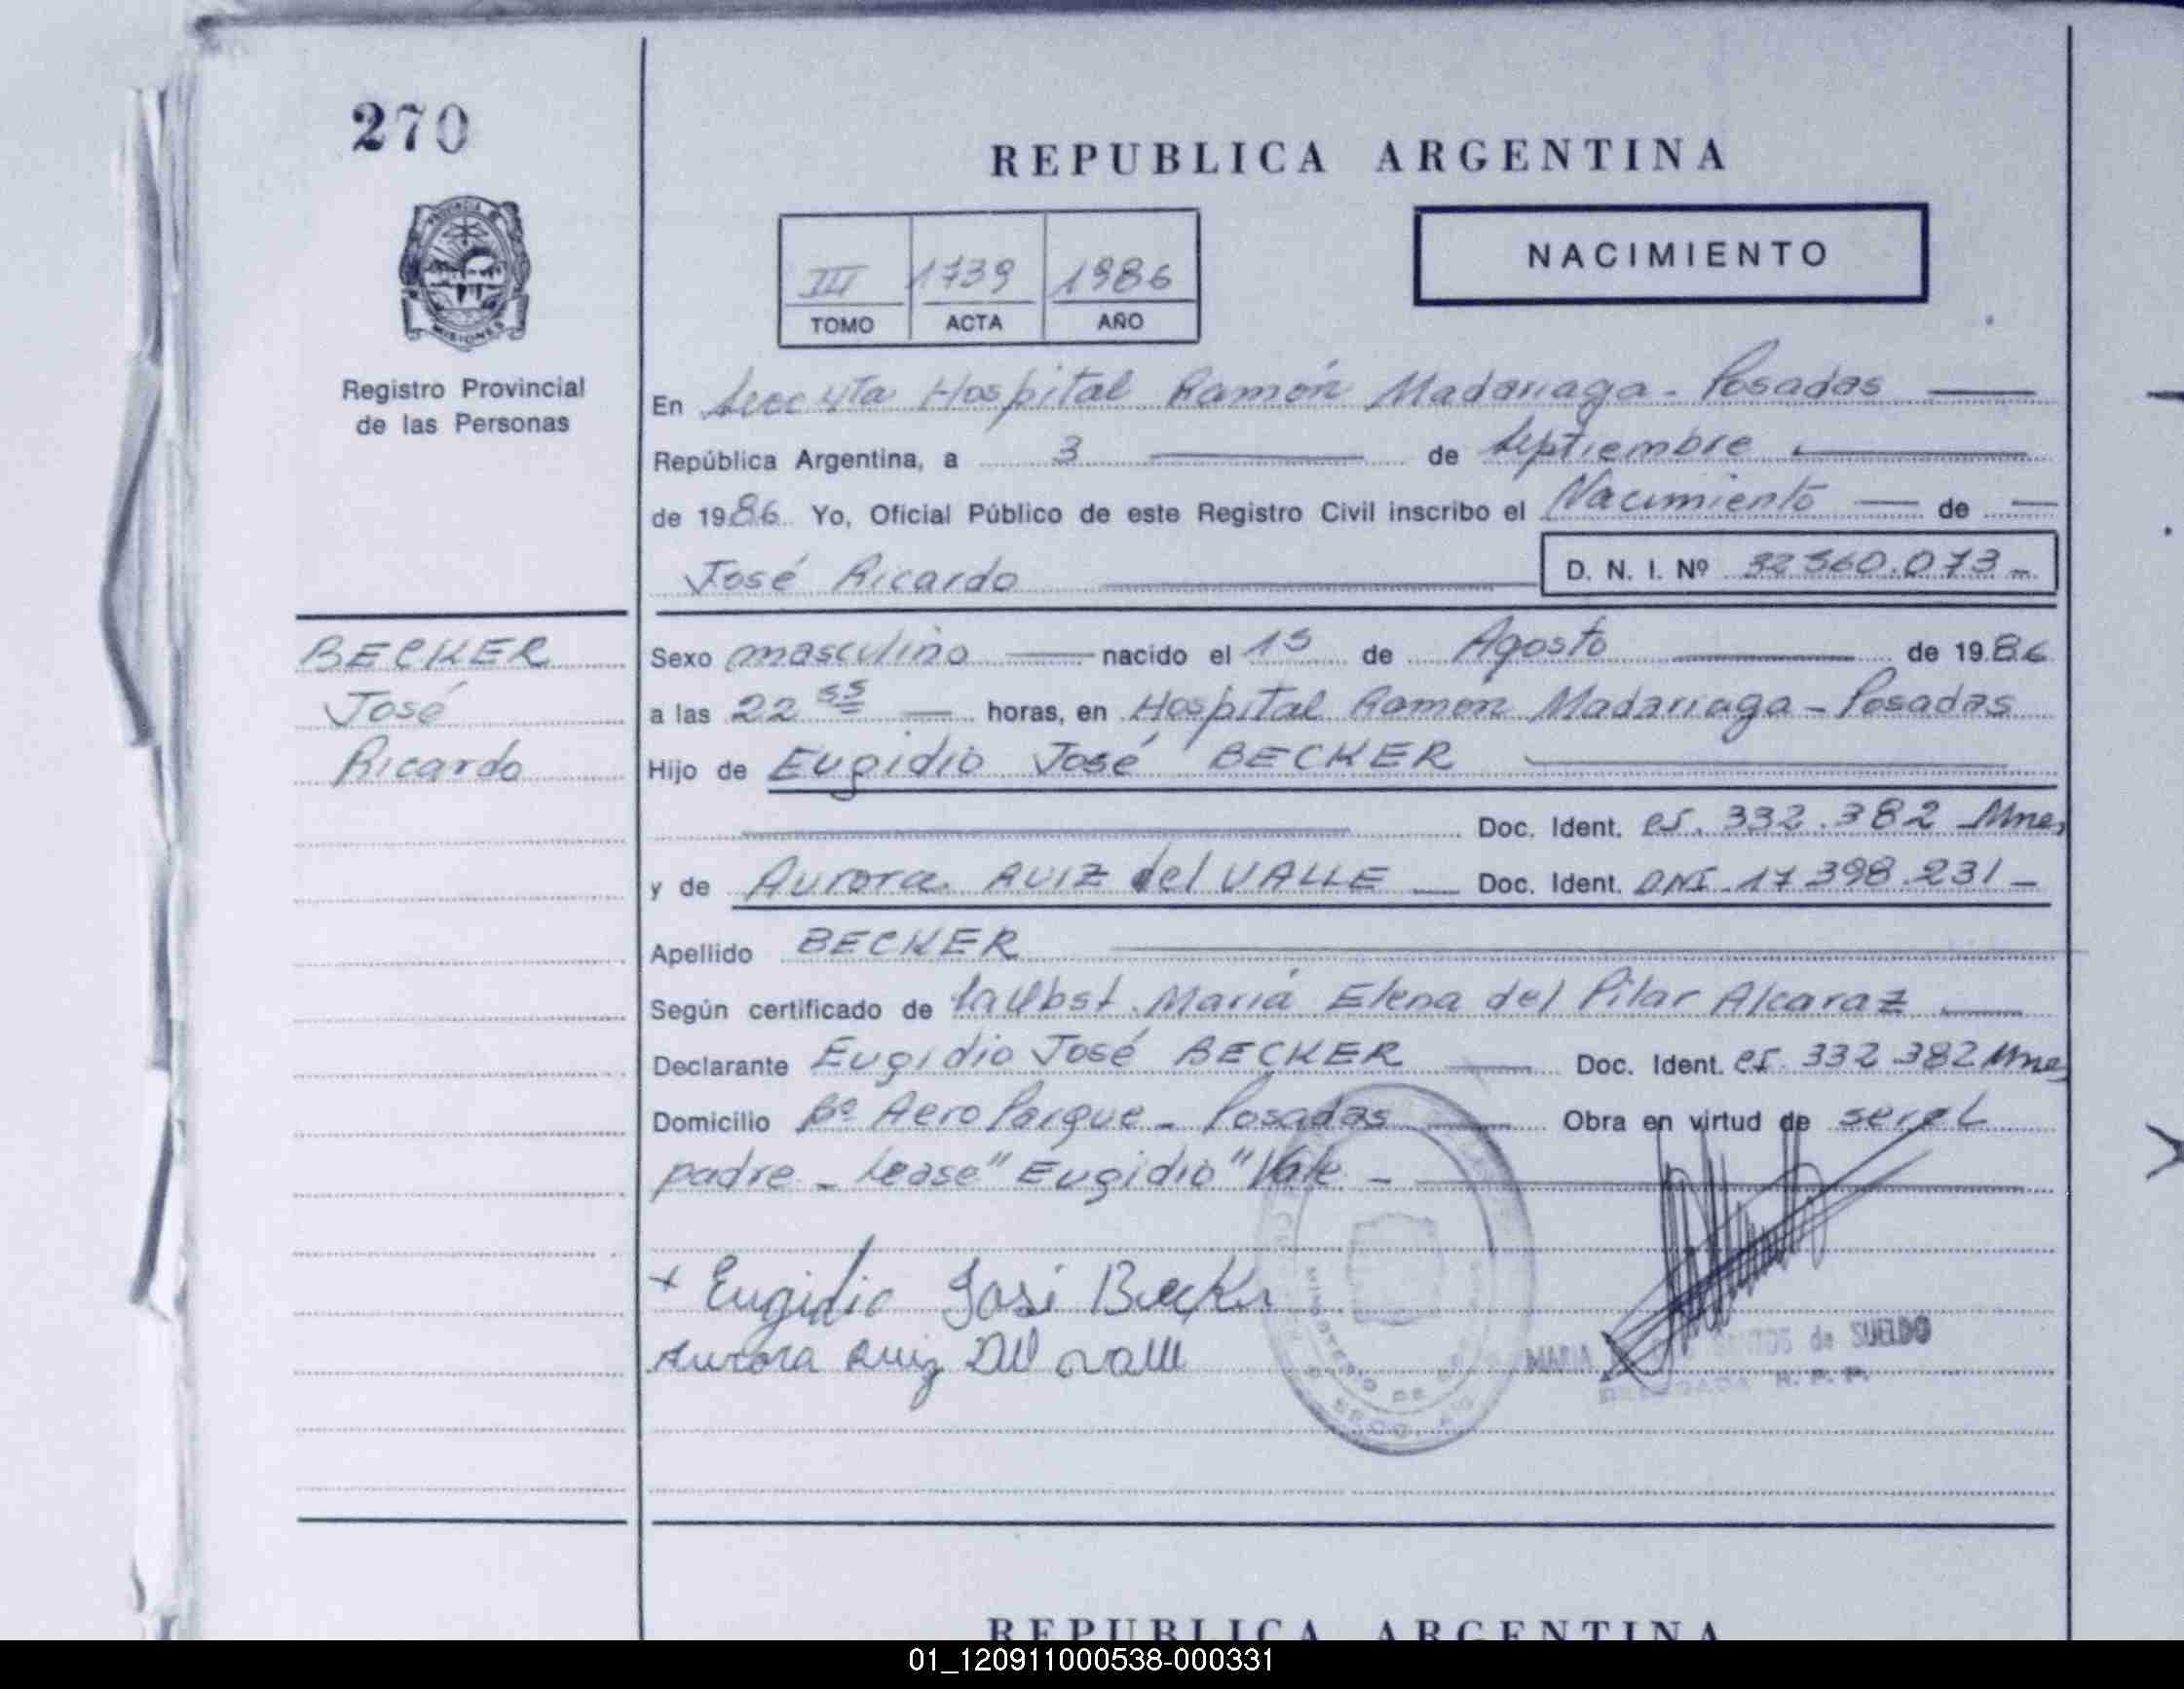 270
REPUBLICA ARGENTINA
NACIMIENTO
III 1739 1986
TOMO ACTA AÑO
PROVINCIA DE
MISIONES
Registro Provincial
de las Personas
En Secc 4ta Hospital Ramón Madariaga - Posadas
República Argentina, a 3 de Septiembre
de 1986 Yo, Oficial Público de este Registro Civil inscribo el Nacimiento de
José Ricardo
D. N. I. Nº 32360.073-
BECKER
José
Ricardo
Sexo masculino nacido el 15 de Agosto de 1986
a las 22 55 horas, en Hospital Ramon Madariaga - Posadas
Hijo de Eugidio José BECKER
Doc. Ident. CI. 332.382 Mnes
y de Aurora RUIZ del VALLE Doc. Ident. DNI 17398.231-
Apellido BECKER
Según certificado de la Obst. María Elena del Pilar Alcaraz
Declarante Eugidio José BECKER Doc. Ident. CI. 332 382 Mnes
Domicilio Bº Aero Parque - Posadas Obra en virtud de ser el
padre - Lease "Eugidio" Vale -
+ Eugidio José Becker
Aurora Ruiz Del Valle
MINISTERIO DE
MARIA SANTOS de SUELDO
DELEGADA R. P. P.
REPUBLICA ARGENTINA
01_120911000538-000331